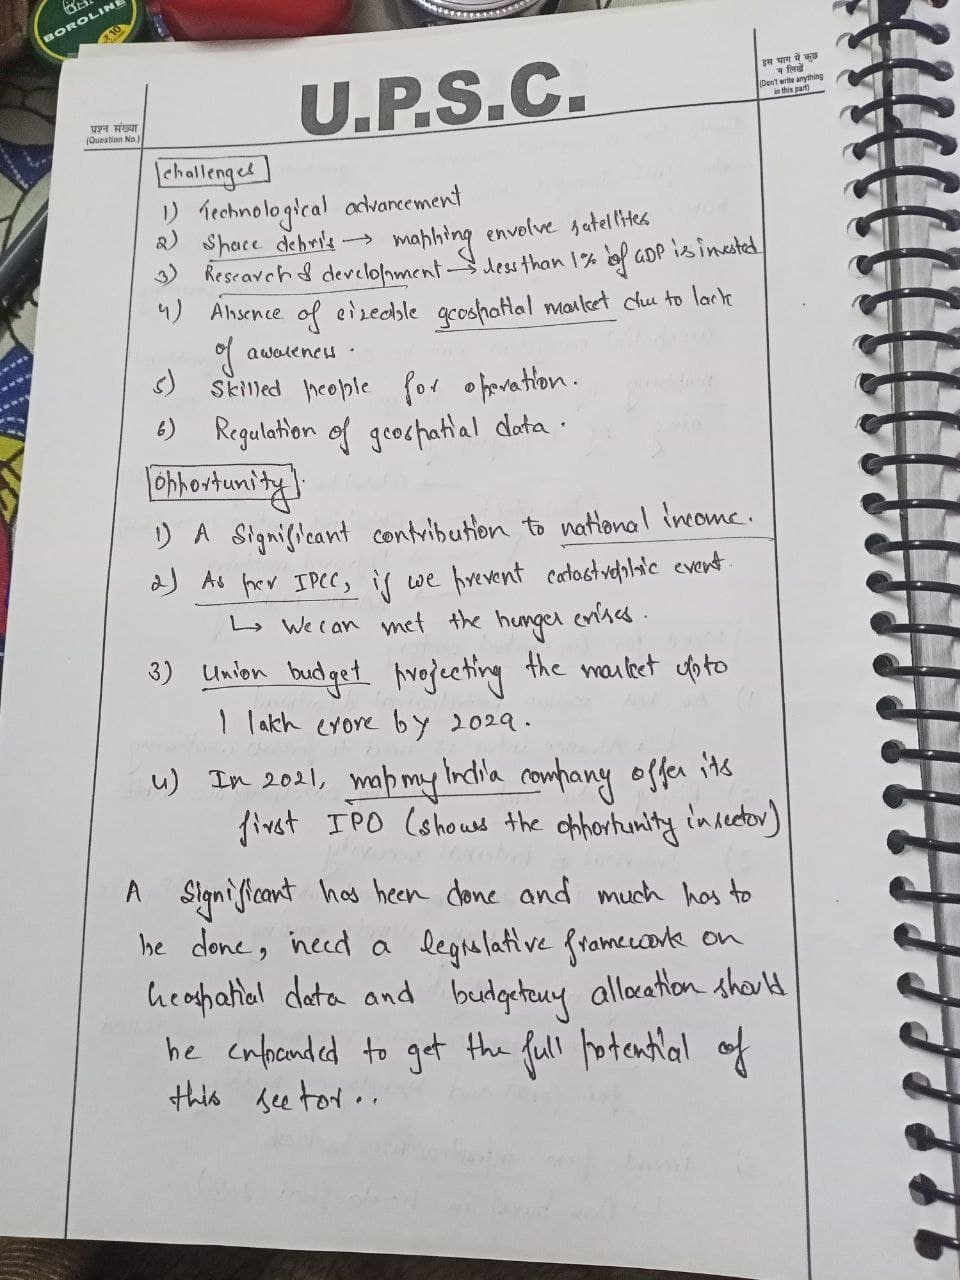 BOROLINE
₹10
U.P.S.C.
प्रश्न संख्या
(Question No.)
इस भाग में कुछ
न लिखें
(Don't write anything
in this part)
Challenges
1) Technological advancement
2) Space debris → mapping envolve satellites
3) Research & development → less than 1% of GDP is invested
4) Absence of sizeable geospatial market due to lack
of awareness.
5) Skilled people for operation.
6) Regulation of geospatial data.
Opportunity
1) A Significant contribution to national income.
2) As per IPCC, if we prevent catastrophic event.
↳ We can met the hunger crises.
3) Union budget projecting the market upto
1 lakh crore by 2029.
4) In 2021, mapmyIndia company offer its
first IPO (shows the opportunity in sector)
A Significant has been done and much has to
be done, need a legislative framework on
Geospatial data and budgetary allocation should
be expanded to get the full potential of
this sector..